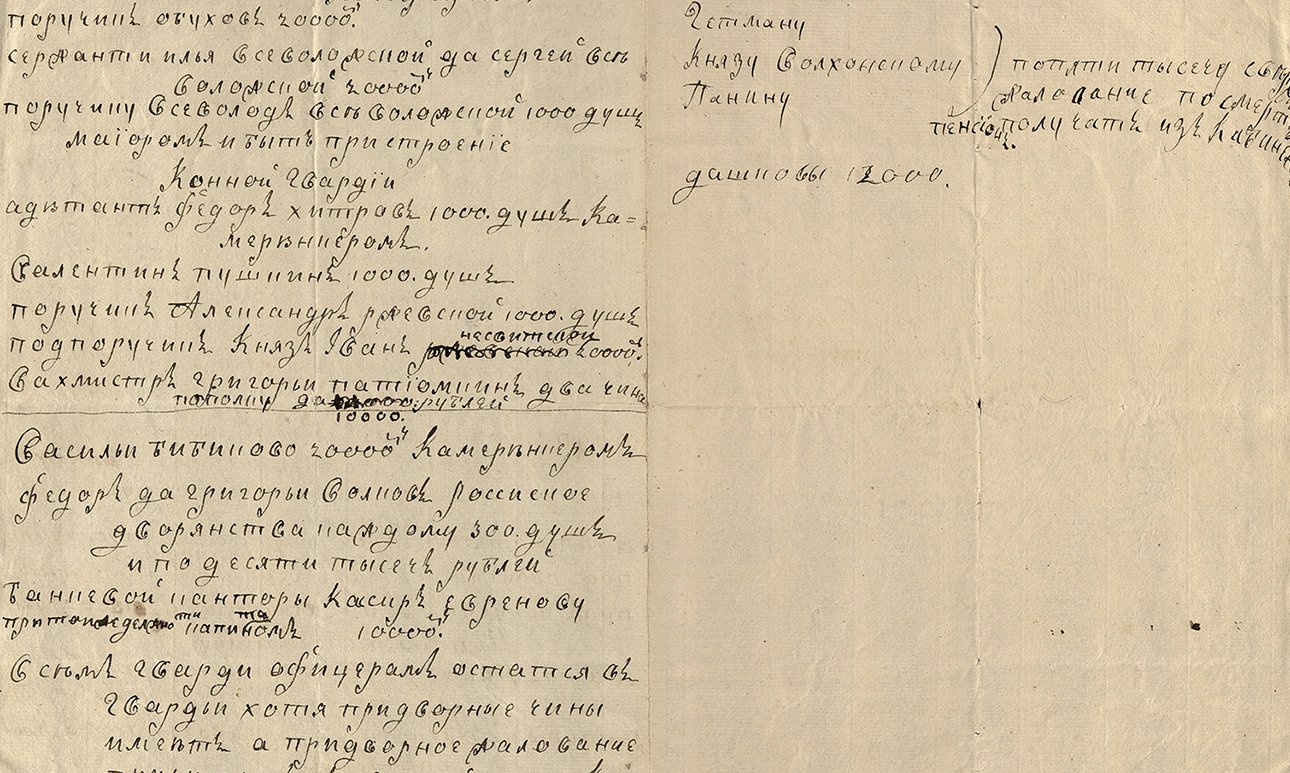 поручикъ обуховъ 20000.
сержанти илья всеволожской да сергей всѣ
воложской 20000
поручику всеволодъ всѣволожской 1000 душъ
маіоромъ и быть при строеніе
Конной Гвардіи
адютантъ федоръ хитровъ 1000. душъ Ка=
меръюнкеромъ.
валентинъ пушкинъ 1000. душъ
поручикъ Александръ ржевской 1000. душъ
подпоручикъ Князь Іванъ несвитской 20000.
вахмистръ григорьи патіомкинъ два чина
пополку да 10000. рублей
васильи бибиково 20000 Камеръюнкеромъ
федоръ да григорьи волковъ россиское
дворянства каждому 300. душъ
и по десяти тысечъ рублей
банковой канторы касиръ Евренову
10000.
всѣмъ гварди офицерамъ остатся въ
гвардьи хотя придворные чины
имеютъ а придворное жалование
Гетману
Князу Волхонскому
Панину
попяти тысечу
жалование посмерть
пенсіонъ получать изъ Кабин
дашковы 12000.